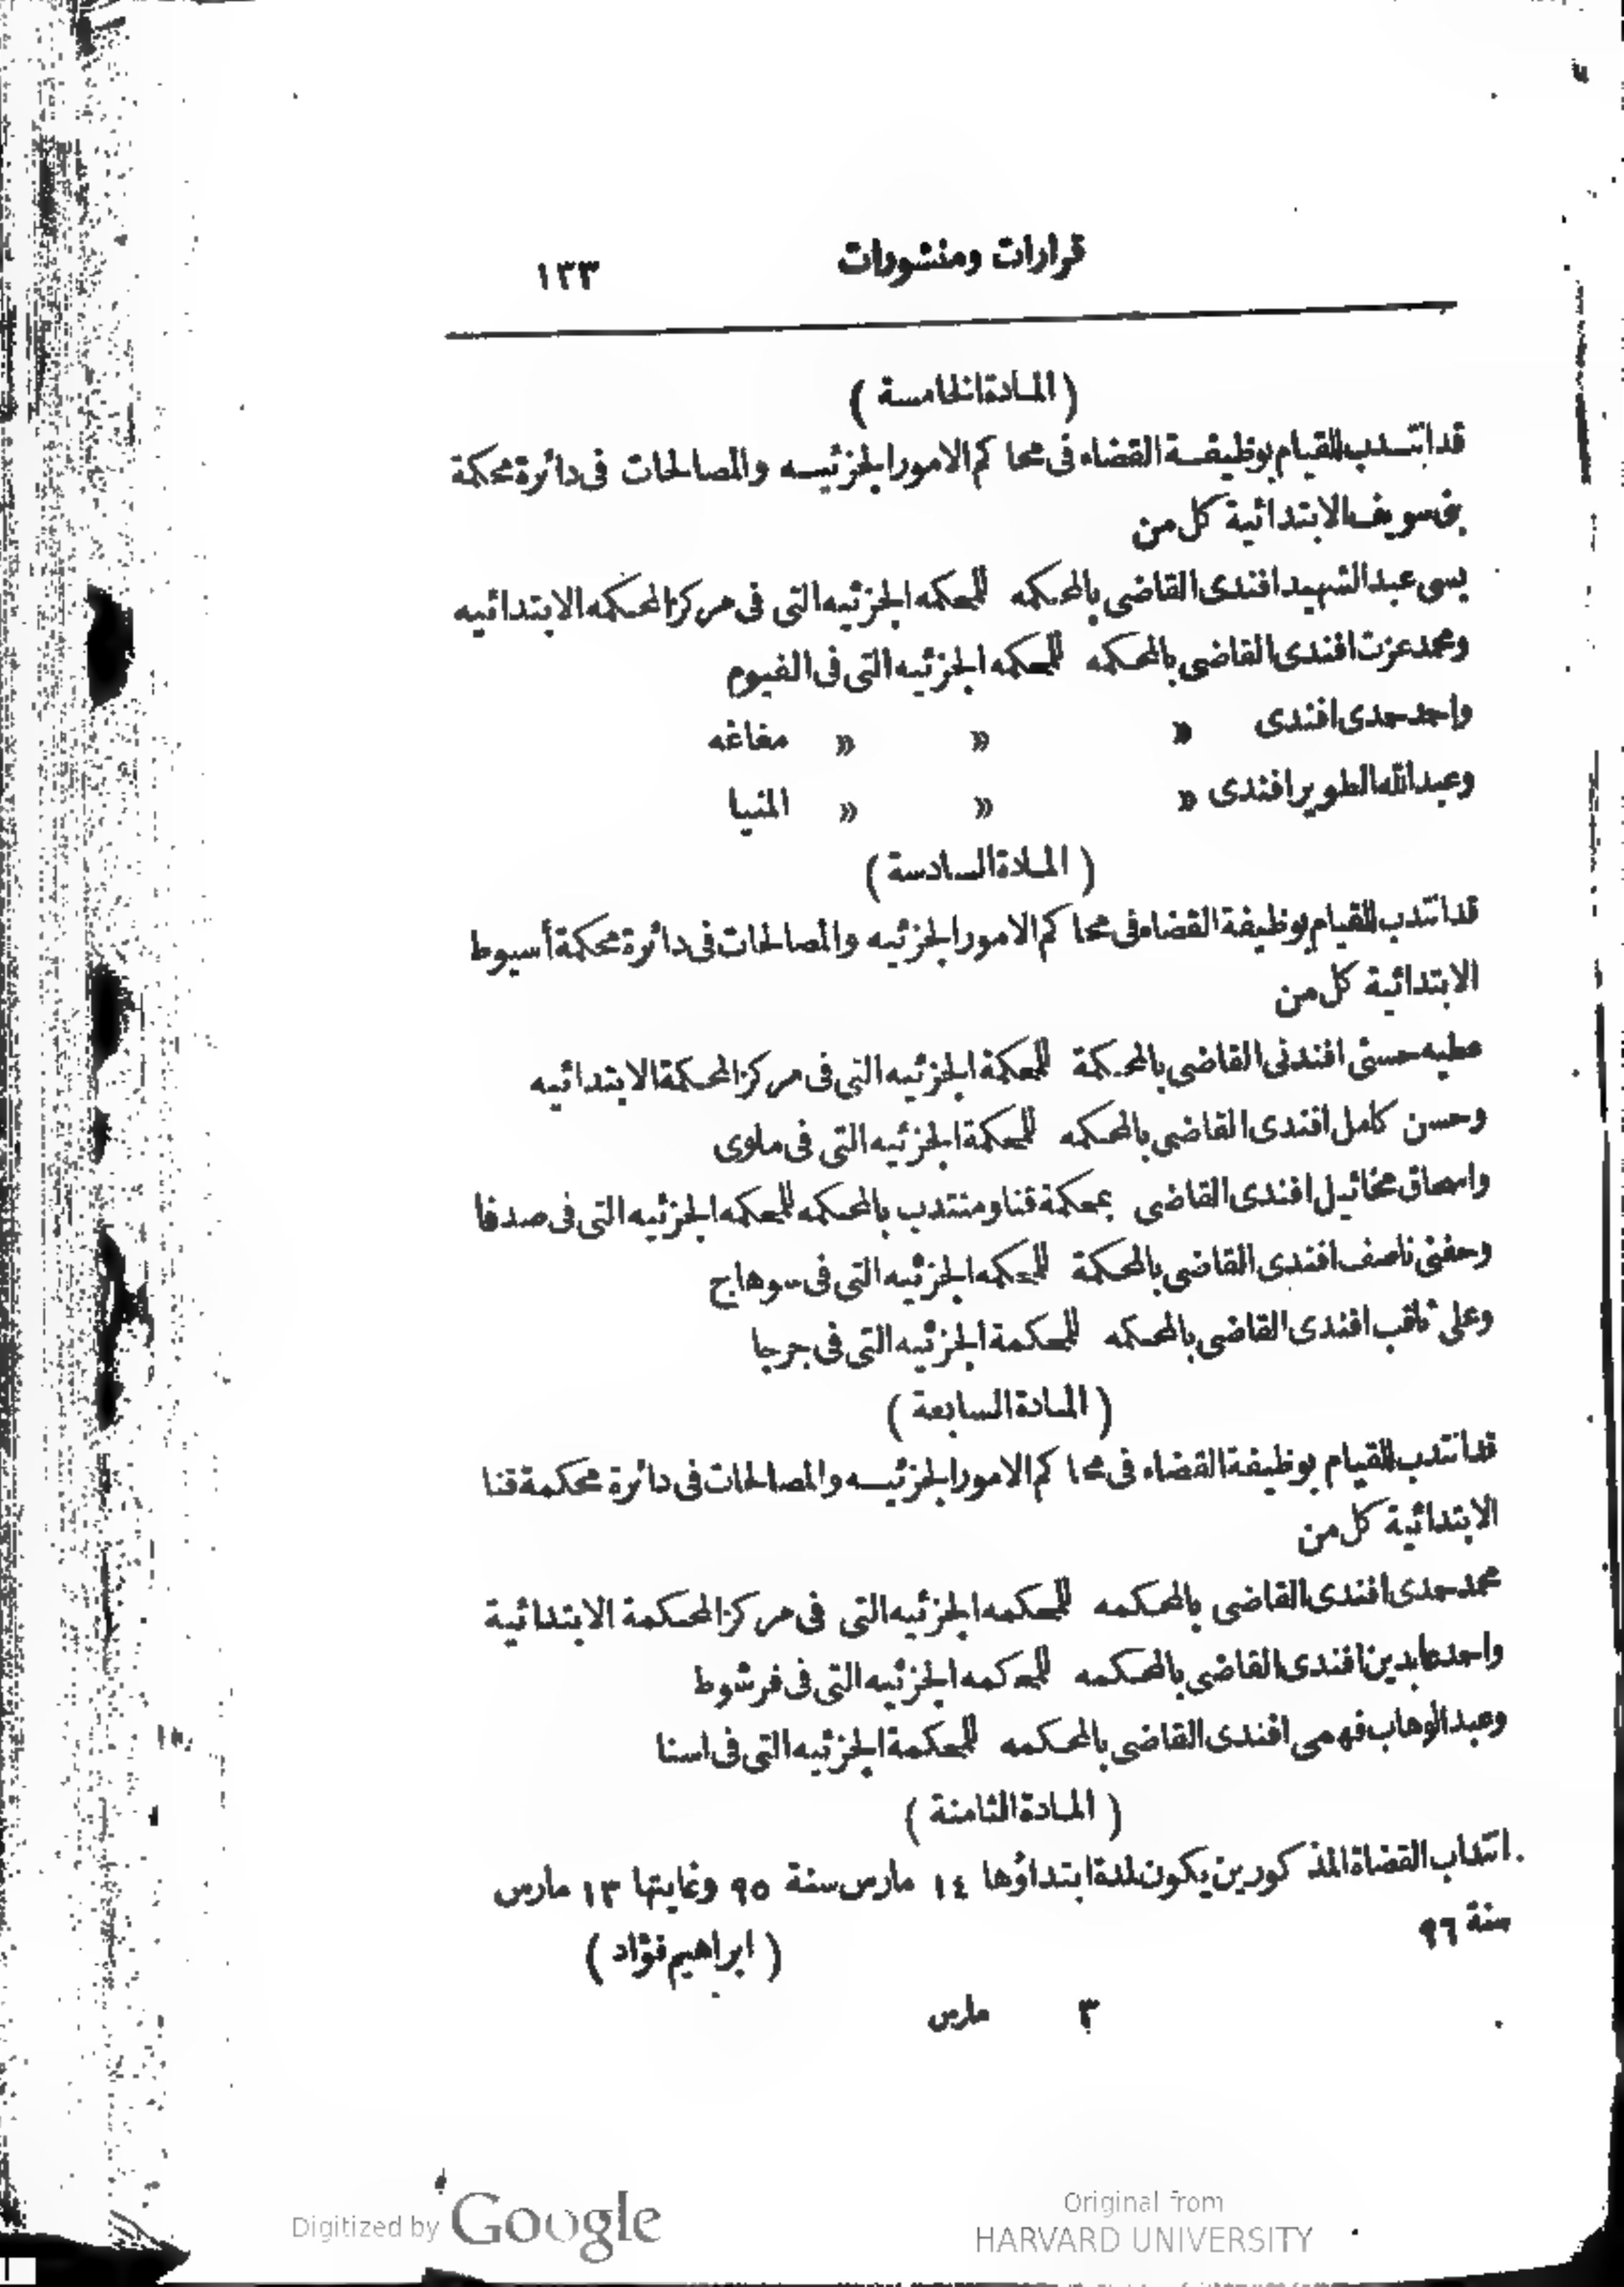 قرارات ومنشورات ١٣٣
( المادة الخامسة )
قد انتدب للقيام بوظيفة القضاء فى محاكم الامور الجزئيه والمصالحات فى دائرة محكمة
بنى سويف الابتدائية كل من
يسى عبد الشهيد افندى القاضى بالمحكمه للمحكمه الجزئيه التى فى مركز المحكمه الابتدائيه
ومحمد عزت افندى القاضى بالمحكمه للمحكمه الجزئيه التى فى الفيوم
واحمد حمدى افندى » » » مغاغه
وعبد الله الطوير افندى » » » المنيا
( المادة السادسة )
قد انتدب للقيام بوظيفة القضاء فى محاكم الامور الجزئيه والمصالحات فى دائرة محكمة أسيوط
الابتدائية كل من
عطيه حسنى افندى القاضى بالمحكمة للمحكمة الجزئيه التى فى مركز المحكمة الابتدائيه
وحسن كامل افندى القاضى بالمحكمه للمحكمة الجزئيه التى فى ملوى
واسحاق مخائيل افندى القاضى بمحكمة قنا ومنتدب بالمحكمه للمحكمه الجزئيه التى فى صدفا
وحفنى ناصف افندى القاضى بالمحكمة للمحكمه الجزئيه التى فى سوهاج
وعلى ثاقب افندى القاضى بالمحكمه للمحكمة الجزئيه التى فى جرجا
( المادة السابعة )
قد انتدب للقيام بوظيفة القضاء فى محاكم الامور الجزئيه والمصالحات فى دائرة محكمة قنا
الابتدائية كل من
محمد حمدى افندى القاضى بالمحكمه للمحكمه الجزئيه التى فى مركز المحكمة الابتدائية
واحمد عابدين افندى القاضى بالمحكمه للمحكمه الجزئيه التى فى فرشوط
وعبد الوهاب فهمى افندى القاضى بالمحكمه للمحكمة الجزئيه التى فى اسنا
( المادة الثامنة )
انتداب القضاة المذكورين يكون لمدة ابتداؤها ١٤ مارس سنة ٩٥ ونهايتها ١٣ مارس
سنة ٩٦
( ابراهيم فؤاد )
٣ مارس
Digitized by Google
Original from
HARVARD UNIVERSITY